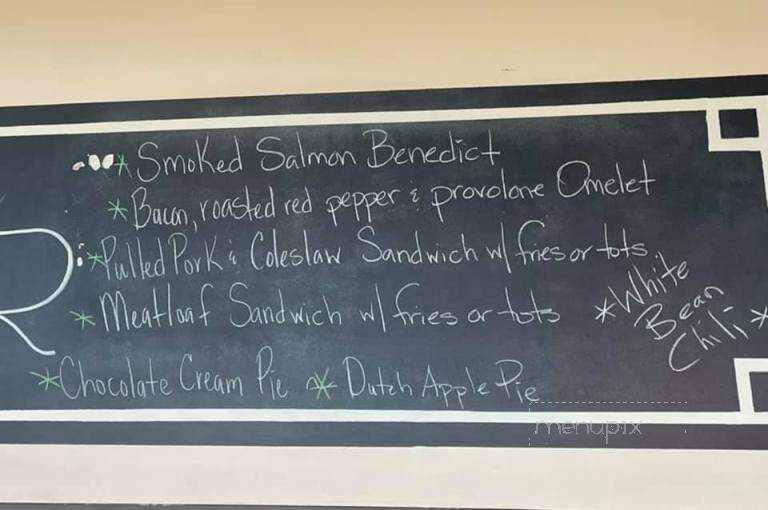 * Smoked Salmon Benedict
* Bacon, roasted red pepper & provolone Omelet
* Pulled Pork & Coleslaw Sandwich w/ fries or tots
* Meatloaf Sandwich w/ fries or tots
* White
Bean
Chili *
* Chocolate Cream Pie * Dutch Apple Pie
R
menupix